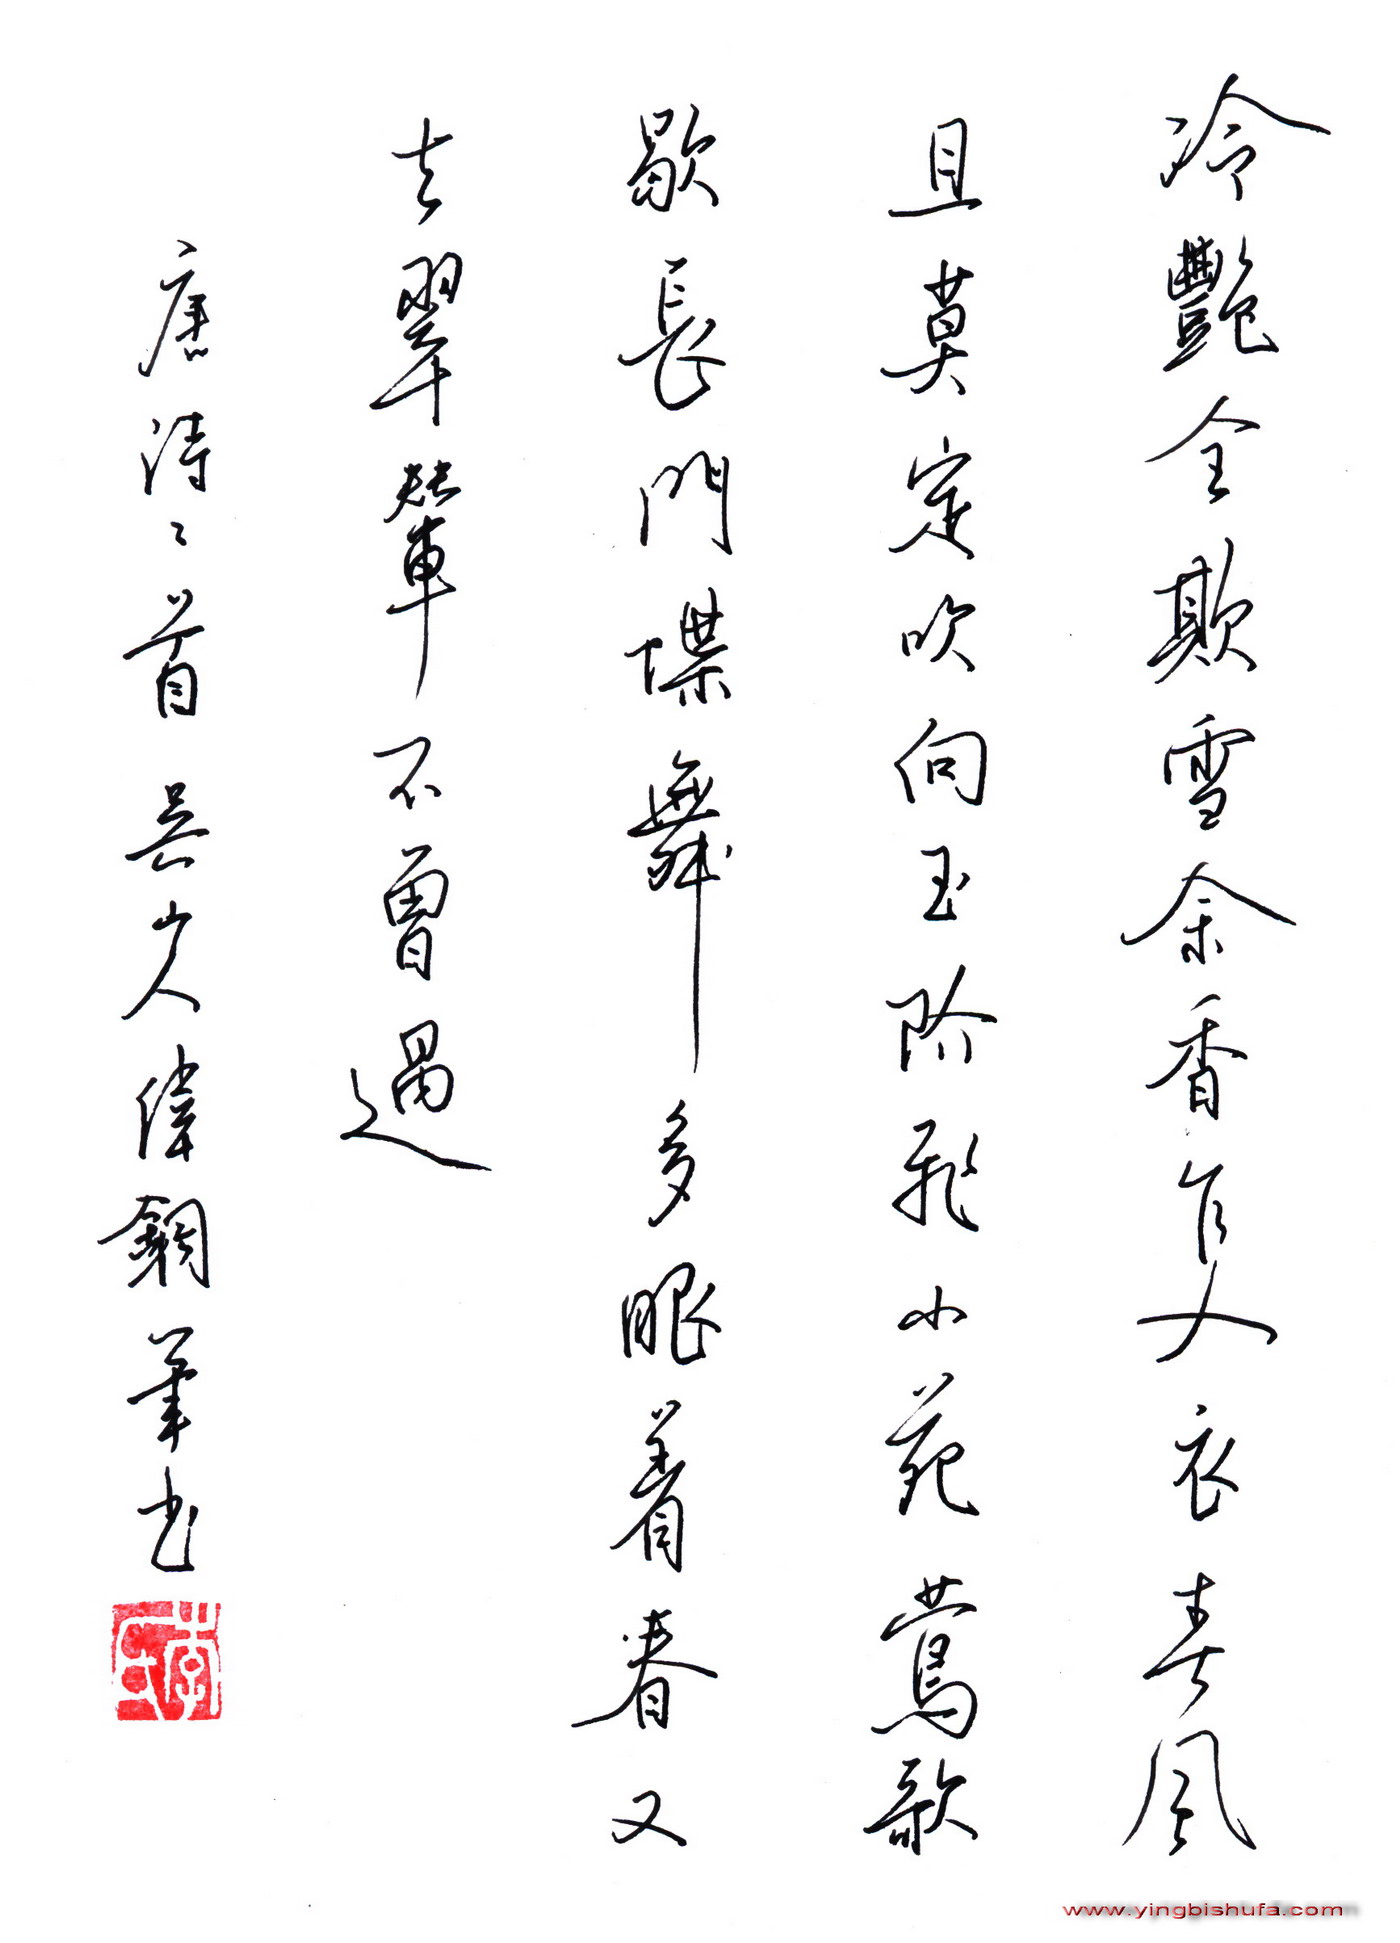 冷艷全欺雪余香乍入衣春風
且莫定吹向玉阶飛小苑鶯歌
歇長門蝶舞多眼看春又
去翠輦不曾過
唐诗二首 偉鋼筆书
李氏
www.yingbishufa.com